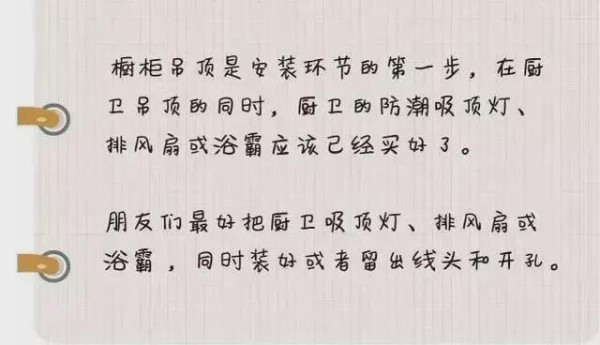 橱柜吊顶是安装环节的第一步，在厨
卫吊顶的同时，厨卫的防潮吸顶灯、
排风扇或浴霸应该已经买好了。
朋友们最好把厨卫吸顶灯、排风扇或
浴霸，同时装好或者留出线头和开孔。